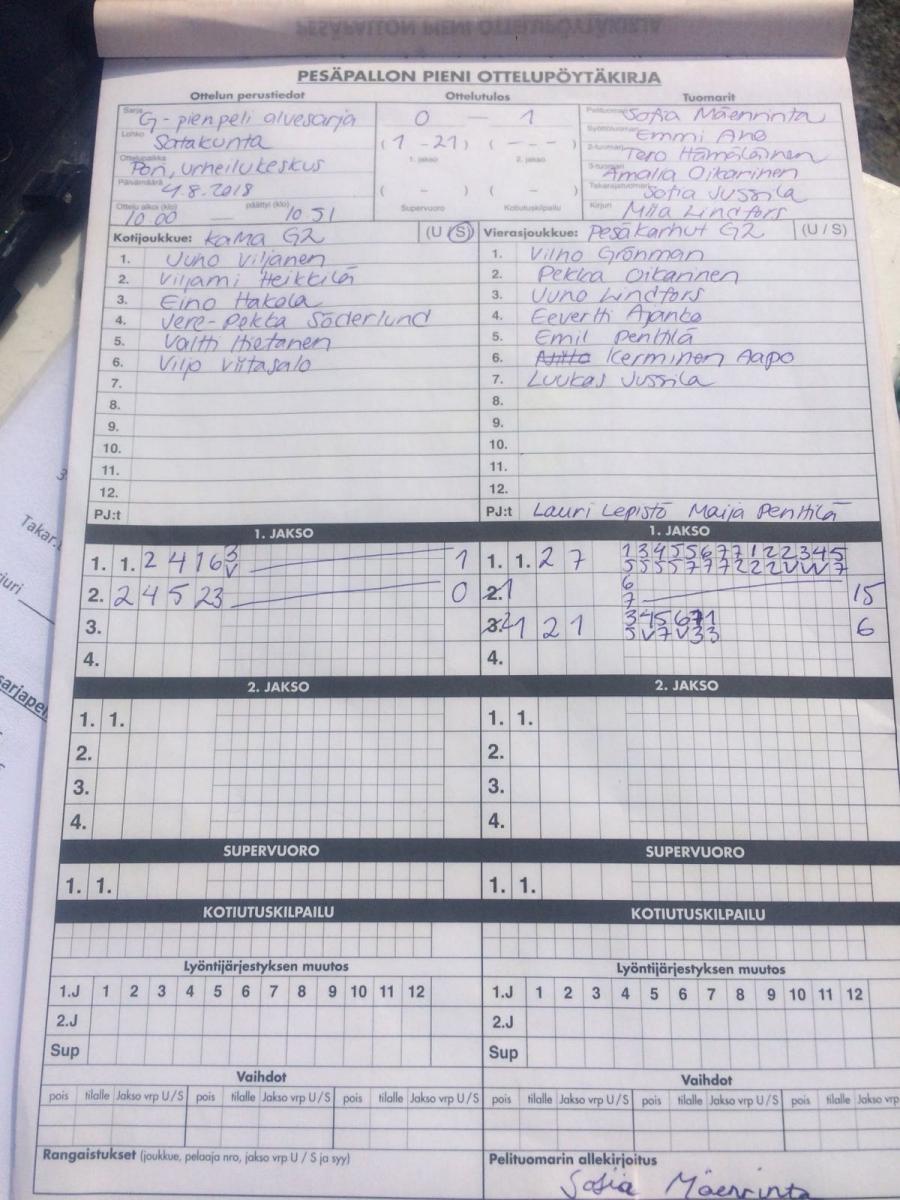 PESÄPALLON PIENI OTTELUPÖYTÄKIRJA
Ottelun perustiedot Ottelutulos Tuomarit
Sarja G-pienpeli alvesarja 0 — 1 Pelituomari Sofia Mäenrinta
Lohko Satakunta (1 - 21) ( - - - ) Syöttötuomari Emmi Aho
1. jakso 2. jakso 2-tuomari Tero Hämäläinen
Ottelupaikka Pori, urheilukeskus 3-tuomari Amalia Oikarinen
Päivämäärä 4.8.2018 ( - ) ( - ) Takarajatuomari Sofia Jussila
Ottelu alkoi (klo) 10.00 — päättyi (klo) 10 51 Supervuoro Kotiutuskilpailu Kirjuri Miia Lindfors
Kotijoukkue: Kama G2 (U / S) Vierasjoukkue: Pesäkarhut G2 (U / S)
1. Juho Viljanen 1. Vilho Grönman
2. Viljami Heikkilä 2. Pekka Oikarinen
3. Eino Hakala 3. Juho Lindfors
4. Vere-Pekka Söderlund 4. Eevertti Ajanko
5. Valtti Hietanen 5. Emil Penttilä
6. Viljo Viitasalo 6. Kerminen Aapo
7. 7. Luukas Jussila
8. 8.
9. 9.
10. 10.
11. 11.
12. 12.
PJ:t PJ:t Lauri Lepistö Maija Penttilä
1. JAKSO 1. JAKSO
1. 1. 2 4 1 6 3 1 1. 1. 2 7 1 3 4 5 5 6 7 7 1 2 2 3 4 5
V 5 5 5 5 7 7 7 2 2 2 V V V 7
2. 2 4 5 2 3 0 2. 1 6 15
7
3. 3. 1 2 1 3 4 5 6 7 1 6
5 V 7 V 3 3
4. 4.
2. JAKSO 2. JAKSO
1. 1. 1. 1.
2. 2.
3. 3.
4. 4.
SUPERVUORO SUPERVUORO
1. 1. 1. 1.
KOTIUTUSKILPAILU KOTIUTUSKILPAILU
Lyöntijärjestyksen muutos Lyöntijärjestyksen muutos
1.J 1 2 3 4 5 6 7 8 9 10 11 12 1.J 1 2 3 4 5 6 7 8 9 10 11 12
2.J 2.J
Sup Sup
Vaihdot Vaihdot
pois tilalle Jakso vrp U / S pois tilalle Jakso vrp U / S pois tilalle Jakso vrp U / S pois tilalle Jakso vrp U / S pois tilalle Jakso vrp U / S pois tilalle Jakso vrp
Rangaistukset (joukkue, pelaaja nro, jakso vrp U / S ja syy) Pelituomarin allekirjoitus
Sofia Mäenrinta